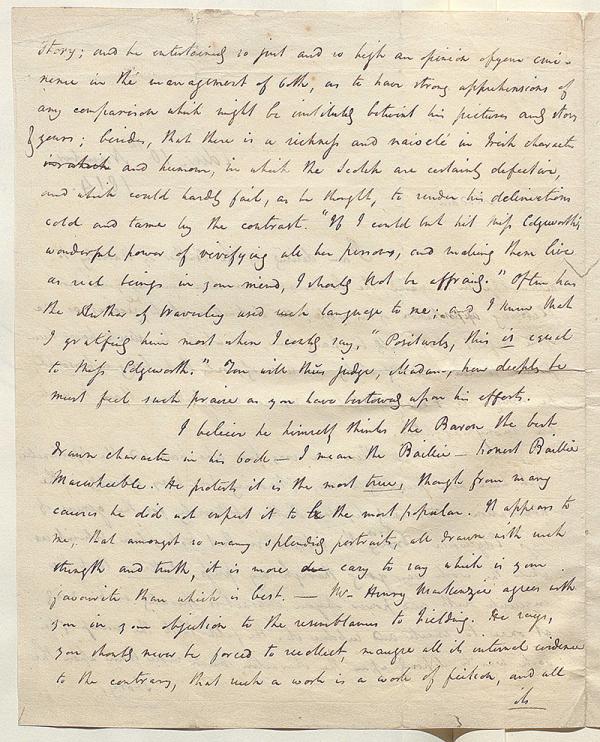 story; and he entertained so just and so high an opinion of your emi-
nence in the management of both, as to have strong apprehensions of
any comparison which might be instituted betwixt his pictures and story
& yours; besides, that there is a richness and naiveté in Irish character
in which and humour, in which the Scotch are certainly defective,
and which could hardly fail, as he thought, to render his delineations
cold and tame by the contrast. "If I could but hit Miss Edgeworth's
wonderful power of vivifying all her persons, and making them live
as real beings in your mind, I should not be affraid." Often has
the Author of Waverley used such language to me; and I knew that
I gratified him most when I could say, "Positively, this is equal
to Miss Edgeworth." You will thus judge, Madam, how deeply he
must feel such praise as you have bestowed upon his efforts.
I believe he himself thinks the Baron the best
drawn character in his book — I mean the Baillie — honest Baillie
Macwheeble. He protests it is the most true, though from many
causes he did not expect it to be the most popular. It appears to
me, that amongst so many splendid portraits, all drawn with such
strength and truth, it is more easy to say which is your
favourite than which is best. — Mr Henry Mackenzie agrees with
you in your objection to the resemblance to Fielding. He says,
you should never be forced to recollect, maugre all its internal evidence
to the contrary, that such a work is a work of fiction, and all
its